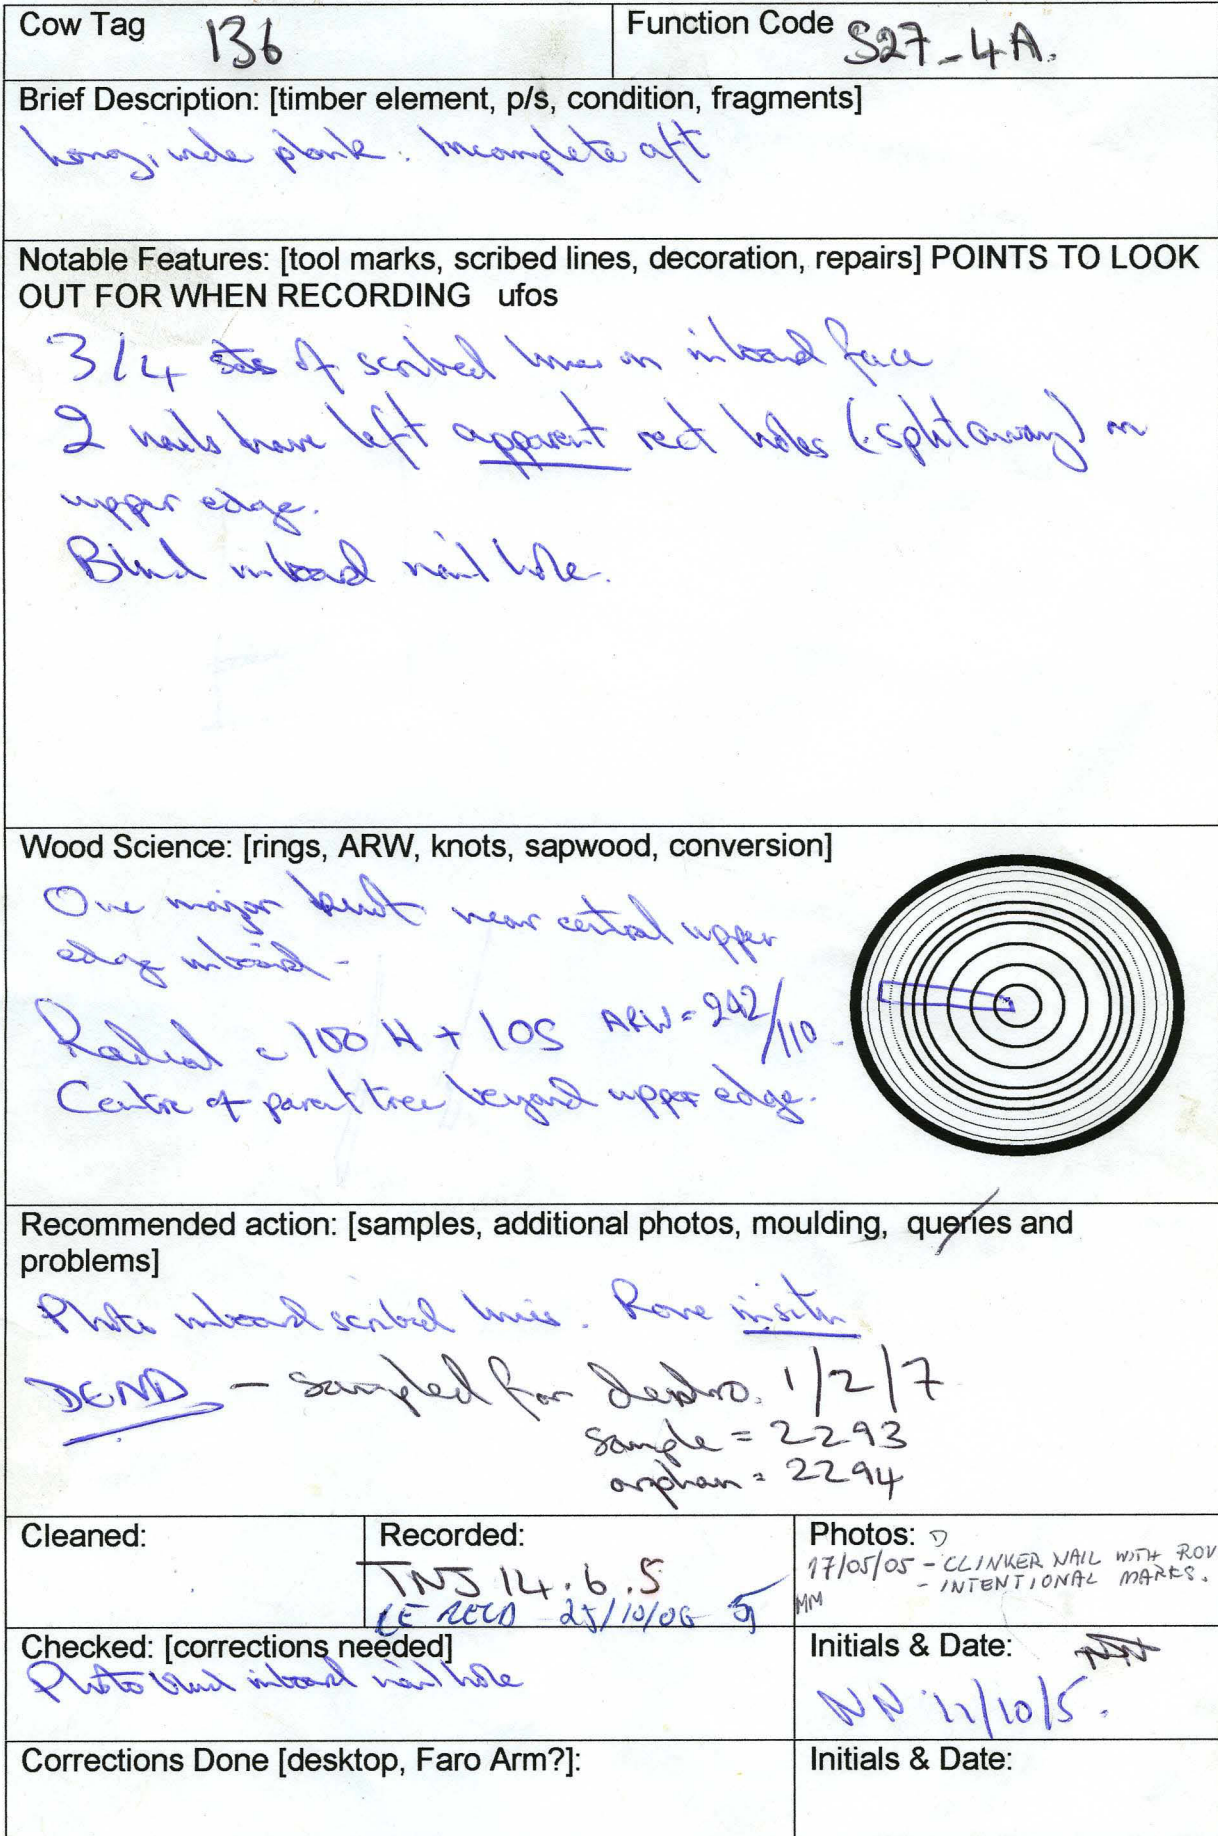 Cow Tag 136
Function Code S27-4A.
Brief Description: [timber element, p/s, condition, fragments]
Long, wide plank. Incomplete aft
Notable Features: [tool marks, scribed lines, decoration, repairs] POINTS TO LOOK
OUT FOR WHEN RECORDING ufos
3/4 sets of scribed lines on inboard face
2 nails have left apparent rect holes (split away) on
upper edge.
Blind inboard nail hole.
Wood Science: [rings, ARW, knots, sapwood, conversion]
One major knot near central upper
edge inboard -
Radial c 100 H + 10S ARW = 242/110
Centre of parent tree beyond upper edge.
Recommended action: [samples, additional photos, moulding, queries and
problems]
Photo inboard scribed lines. Rove insitu
DEND - Sampled for dendro. 1/2/7
sample = 2293
orphan = 2294
Cleaned:
Recorded:
TNJ 14.6.5
RECD 25/10/06
Photos:
17/05/05 - CLINKER NAIL WITH ROV
- INTENTIONAL MARKS.
MM
Checked: [corrections needed]
Photo blind inboard nail hole
Initials & Date: NN
NN 11/10/5.
Corrections Done [desktop, Faro Arm?]:
Initials & Date: